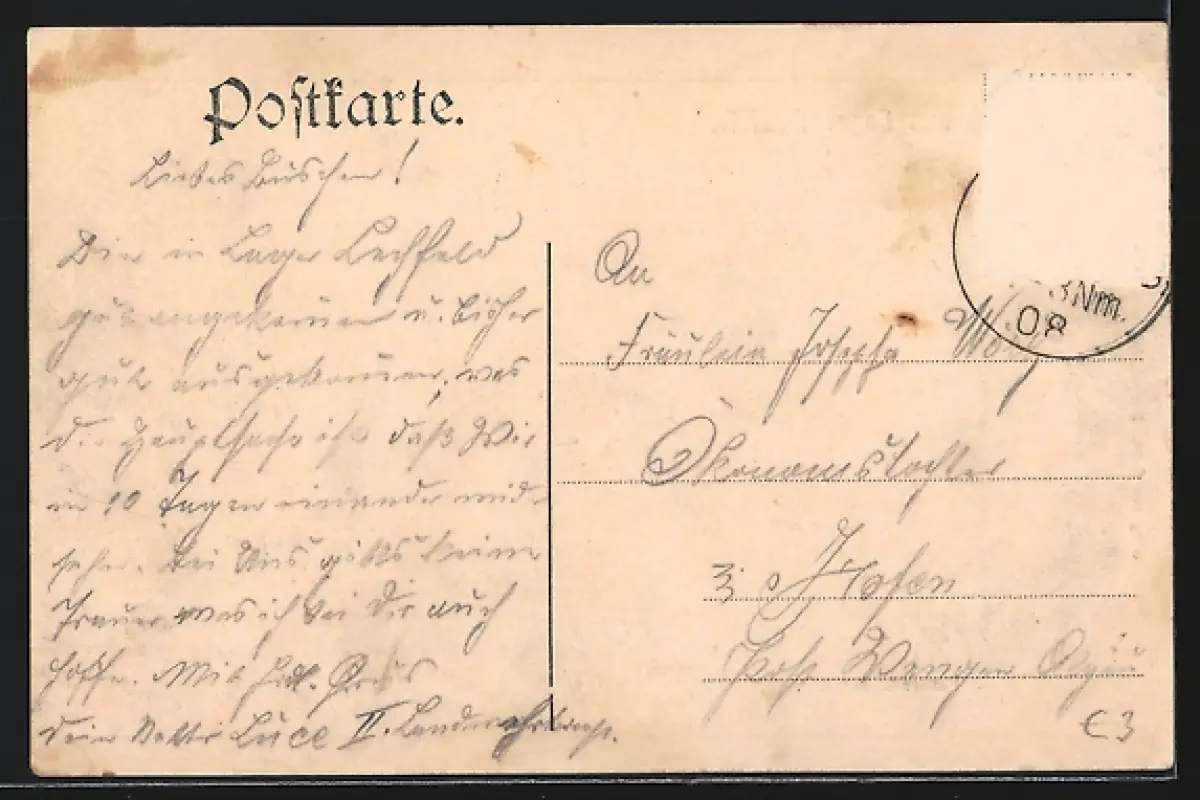 Postkarte.
Liebes Buschen!
Bin in Lager Lechfeld
gut angekommen u. bisher
gut ausgekommen, was
die Hauptsache ist daß Wir
in 10 Tagen einander wied-
sehn. Bei Uns gibts keine
Trauer was ich bei Dir auch
hoffe. Mit hrl. Grus
dein Vetter Luce II. Landwehr
An
Fräulein Josepha
Ökonomstochter
Post Wengen Algäu
Nm.
08
€3